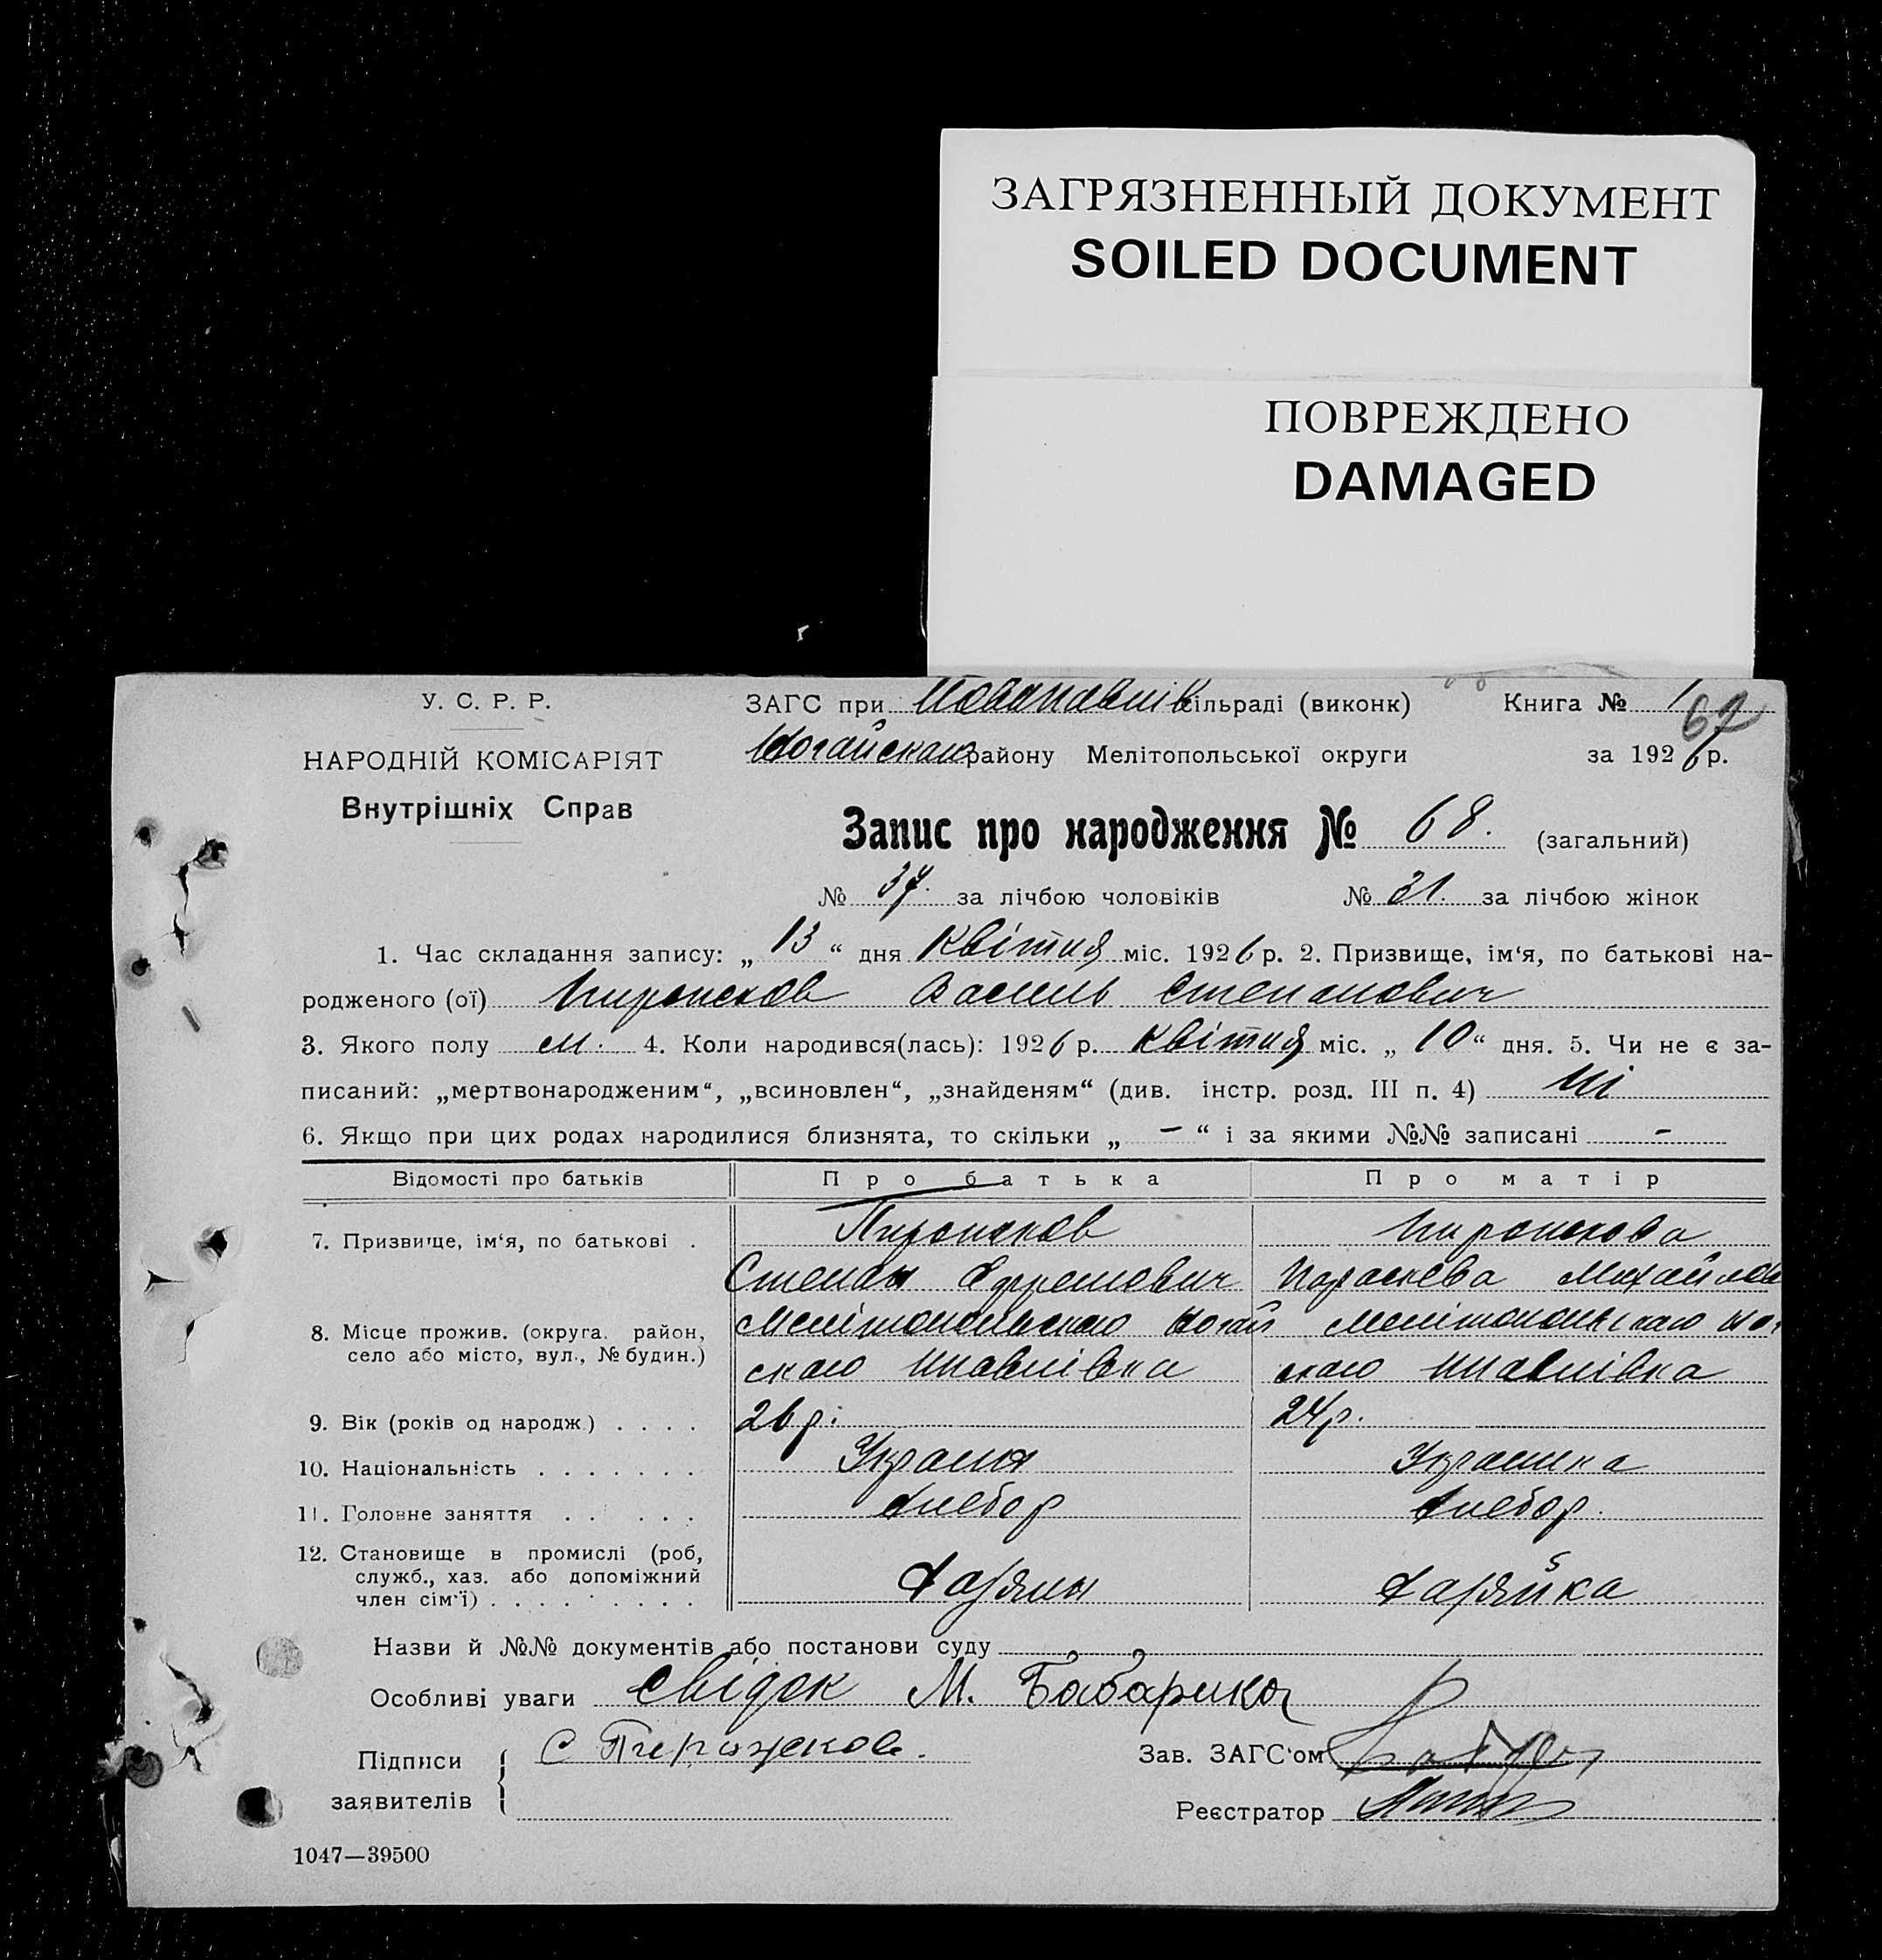 ЗАГРЯЗНЕННЫЙ ДОКУМЕНТ
SOILED DOCUMENT
ПОВРЕЖДЕНО
DAMAGED
У. С. Р. Р.
НАРОДНІЙ КОМІСАРІЯТ
Внутрішніх Справ
ЗАГС при Новопавлів сільраді (виконк) Книга № 1
67
Ногайскаго району Мелітопольської округи за 1926 р.
Запис про народження № 68. (загальний)
№ 37. за лічбою чоловіків № 31. за лічбою жінок
1. Час складання запису: „ 13 “ дня Квітня міс. 1926 р. 2. Призвище, ім‘я, по батькові на-
родженого (ої) Пирожков Василь Степанович
3. Якого полу м. 4. Коли народився(лась): 1926 р. Квітня міс. „ 10 “ дня. 5. Чи не є за-
писаний: „мертвонародженим“, „всиновлен“, „знайденям“ (див. інстр. розд. III п. 4) Ні
6. Якщо при цих родах народилися близнята, то скільки „ – “ і за якими №№ записані –
Відомості про батьків Про батька Про матір
7. Призвище, ім‘я, по батькові . Пирожков Пирожкова
Степан Параскева Михайлов
8. Місце прожив. (округа. район, село або місто, вул., № будин.) Мелітопольскаго Ногай Мелітопольскаго Но
скаго Нпавлівка скаго Нпавлівка
9. Вік (років од народж.) . . . . 26 р. 24 р.
10. Національність . . . . . . . Украиня Украинка
11. Головне заняття . . . . . Хлебор Хлебор.
12. Становище в промислі (роб, служб., хаз. або допоміжний член сім‘ї) . . . . . . . . . Хазяин Хазяйка
Назви й №№ документів або постанови суду
Особливі уваги Свідок М. Бабарика
Підписи заявителів С Пирожков. Зав. ЗАГС‘ом
Реєстратор
1047—39500